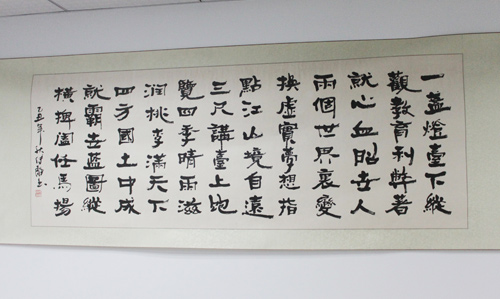 一盞燈臺下縱
觀教育利弊著
就心血昭世人
兩個世界裏變
換虛實夢想指
點江山境自遠
三尺講臺上飽
覽四季晴雨滋
潤桃李滿天下
四方國土中成
就霸世藍圖縱
橫捭闔任馬揚